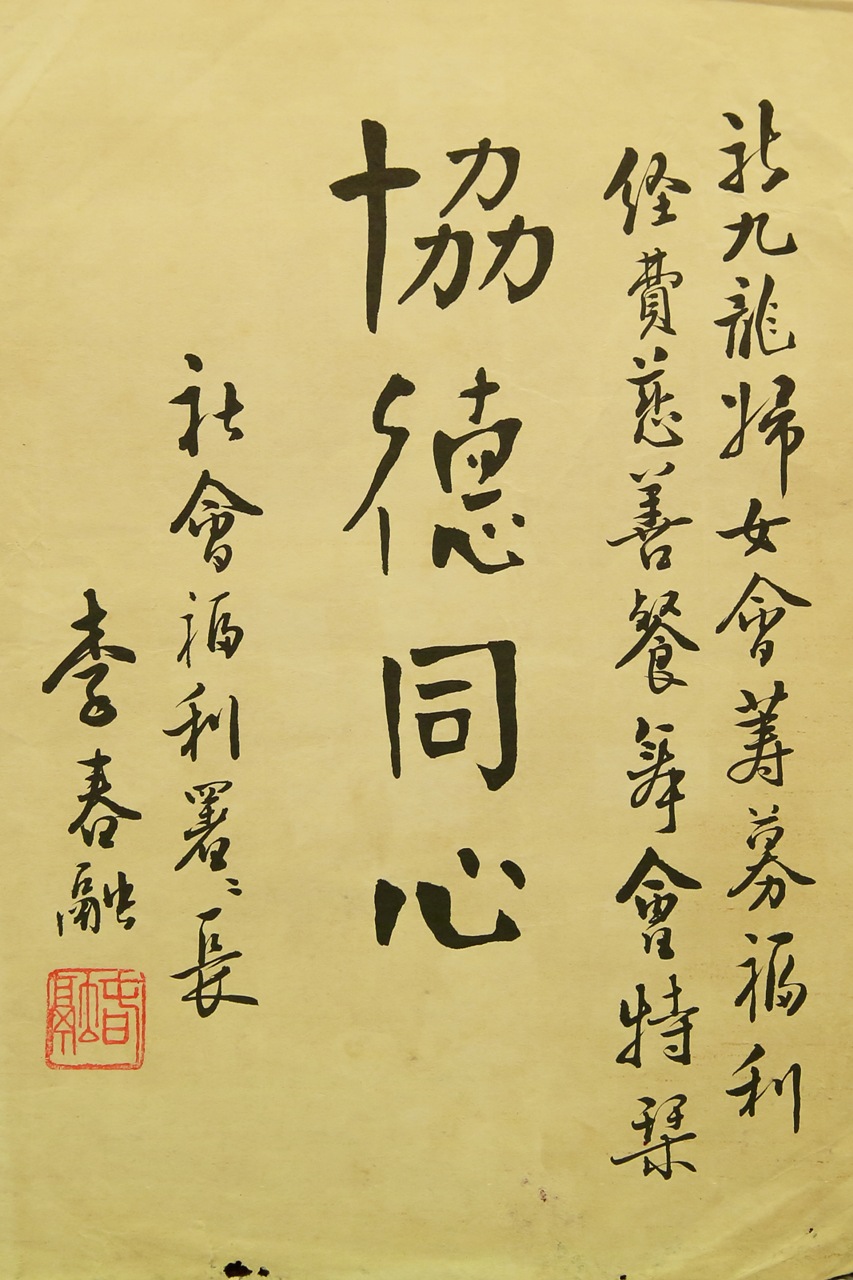 新九龍婦女會籌募福利
経費慈善餐舞會特栞
協德同心
社會福利署〻長
李春融